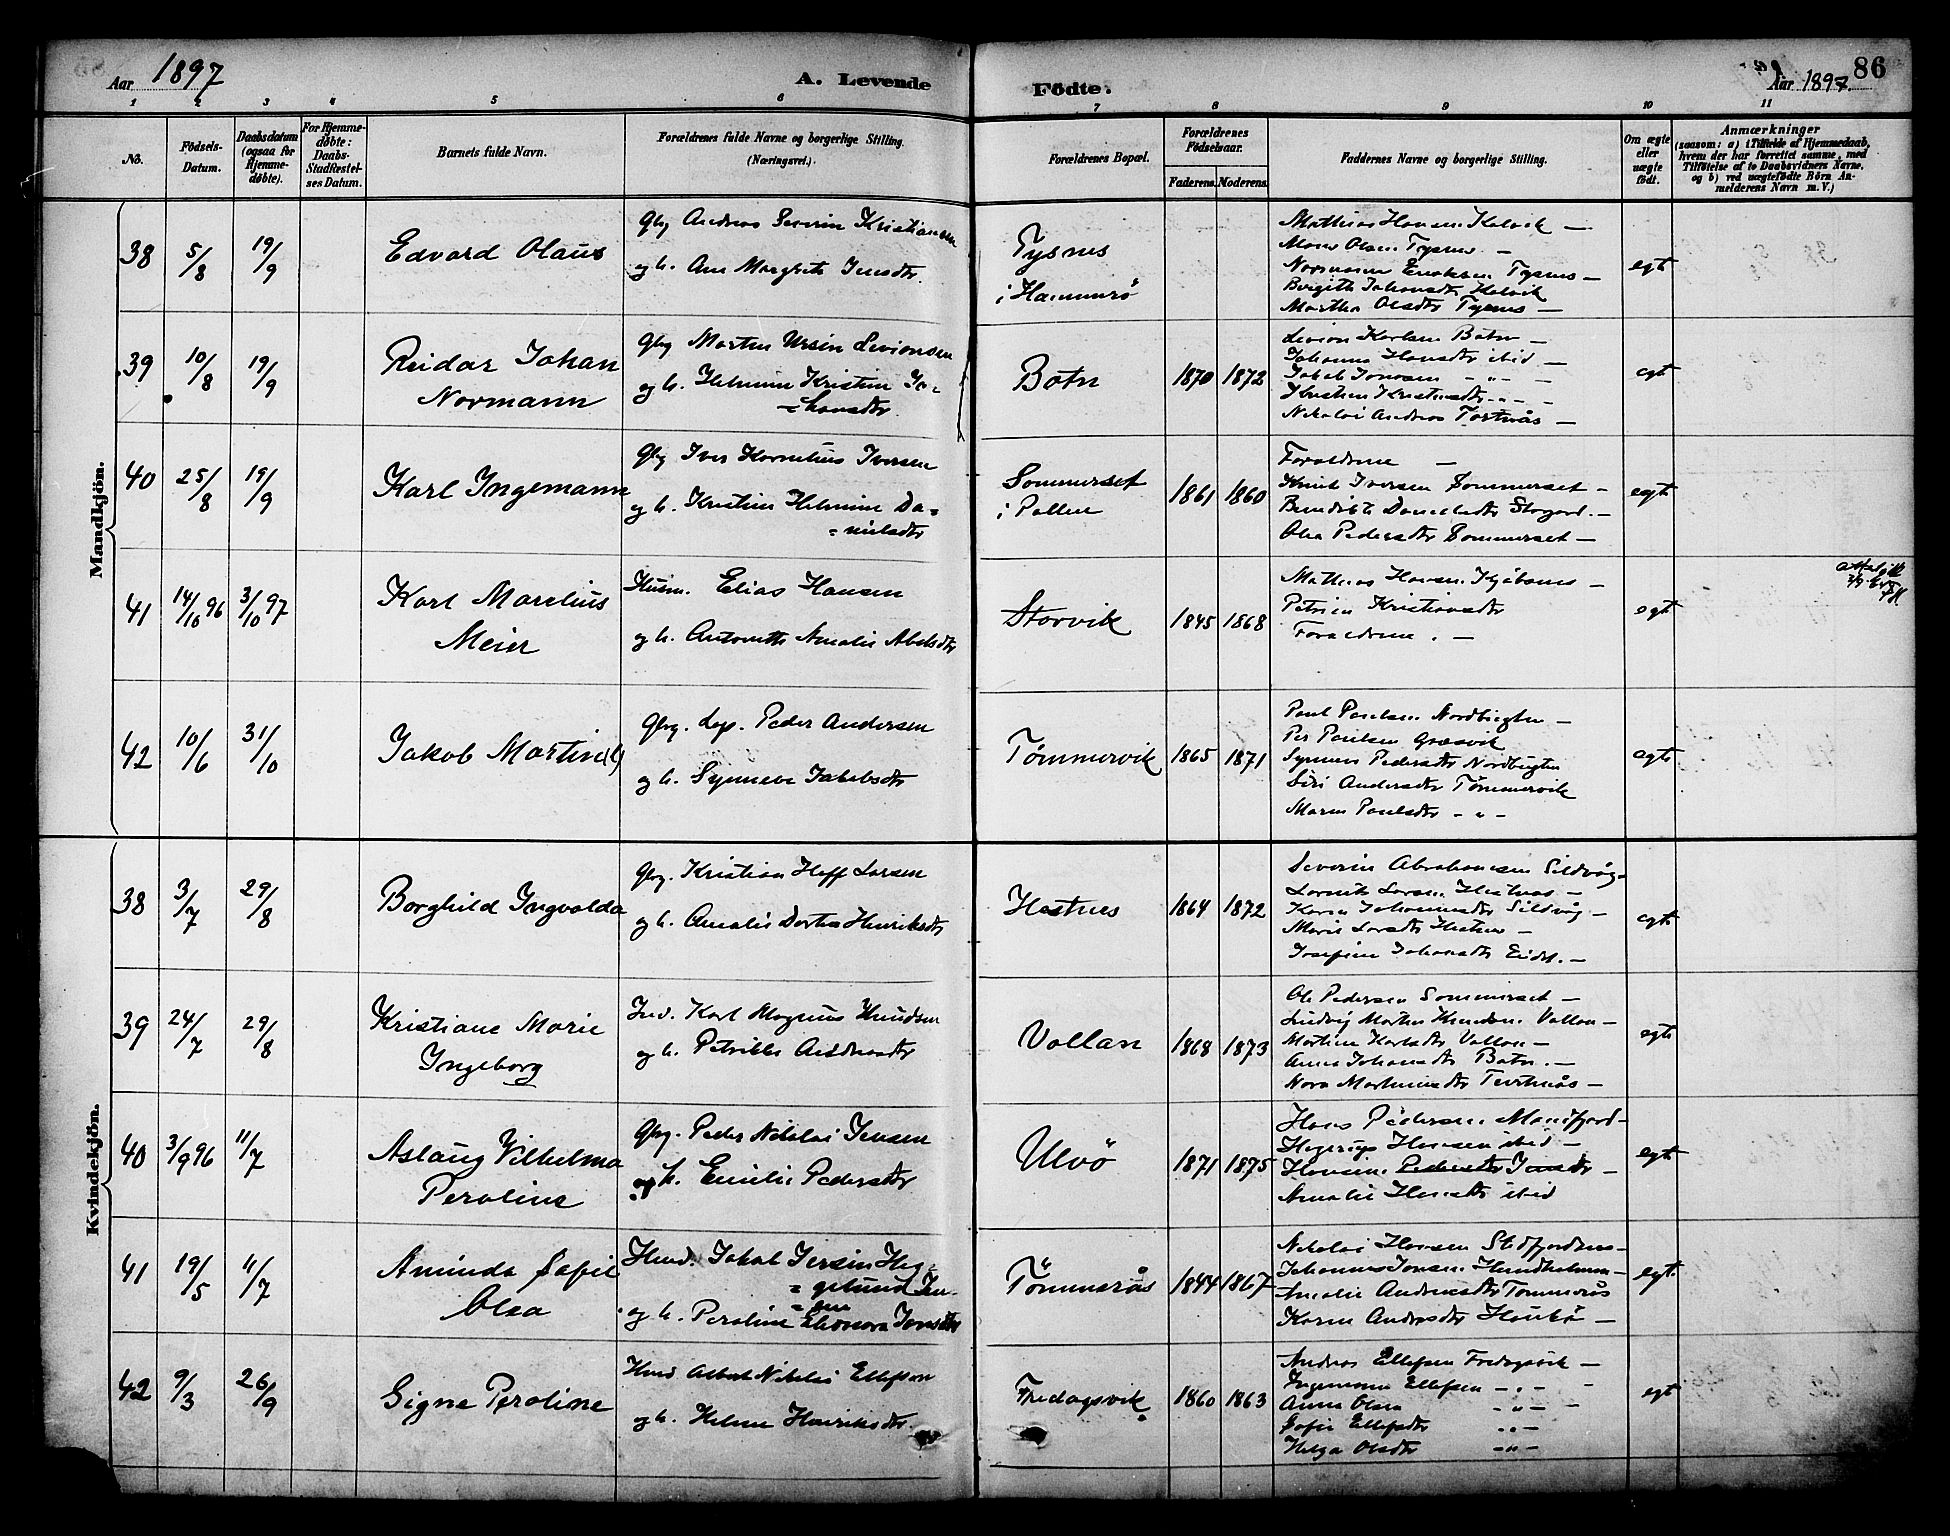 Aar 1897
A. Levende
Födte.
Aar 1897.
86
1 2 3 4 5 6 7 8 9 10 11
No.
Födsels-
Datum.
Daabsdatum
(ogsaa for
Hjemme-
døbte).
For Hjemme-
døbte:
Daabs-
Stadfæstel-
ses Datum.
Barnets fulde Navn.
Forældrenes fulde Navne og borgerlige Stilling.
(Næringsvei.)
Forældrenes Bopæl.
Forældrenes
Födselsaar.
Faderens. Moderens.
Faddernes Navne og borgerlige Stilling.
Om ægte
eller
uægte
født.
Anmærkninger
(saasom: a) i Tilfælde af Hjemmedaab,
hvem der har forrettet samme, med
Tilføielse af to Daabsvidners Navne,
og b) ved uægtefødte Börn An-
melderens Navn m. V.)
Mandkjön.
38 5/8 19/9
Edvard Olaus
Gbg Andreas Severin Kristiansen
og h. Ane Margrete Jensdtr.
Tysnes
i Hammerö
Mathias Hansen Kalvik —
Olsen Tysnes —
Normann Tysnes —
Birgith Johansdtr Kalvik
Martha Olsdtr Tysnes —
egte
39 10/8 19/9
Reidar Johan
Normann
Gbg Morten Ursin Levionsen
og h. Helmine Kristine Jo-
=hansdtr.
Botn
1870 1872
Levion Karlsen Botn —
Johanna Hansdtr ibid —
Jakob Jonsen — " — —
Kristen Kristensdtr — " — —
Nikolai Andreas Tortnäs —
egte
40 25/8 19/9
Karl Ingemann
Gbg Iver Kornelius Iversen
og h. Kristine Helmine Da=
=nielsdtr
Sommerset
i Pollen
1861 1860
Forældrene —
Knut Iversen Sommerset —
Benedikte Danielsdtr Storjord. —
Olea Pedersdtr Sommerset —
egte
41 14/10 96 3/10 97
Karl Marelius
Meier
Husm. Elias Hansen
og h. Antonette Amalie Abelsdtr
Storvik
1845 1868
Mathias Hansen Kjöbsnes —
Petrine Kristiansdtr
Forældrene. —
egte
42 10/6 31/10
Jakob Martin(?)
Gbg. Lap. Peder Andersen
og h. Synneve Jakobsdtr
Tømmervik
1865 1871
Paul Paulsen Nordbugten —
Per Paulsen Græsvik
Synneve Pedersdtr Nordbugten
Siri Andersdtr Tømmervik
Maren Paulsdtr — " —
egte
Kvindekjön.
38 3/7 29/8
Borghild Ingvalda
Gbg. Kristian Hoff Larsen
og h. Amalie Dortea Henriksdtr
Hestnes
1864 1872
Severin Abrahamsen Sildvåg —
Larsen Hestnes —
Karen Johannesdtr Sildvåg —
Marie Larsdtr Hestnes —
Josefine Johansdtr Eidet. —
egte
39 24/7 29/8
Kristiane Marie
Ingeborg
Ind. Karl Magnus Knudsen
og h. Petrikke Andreasdtr
Vollan
1868 1873
Ole Pedersen Sommerset —
Ludvig Morten Knudsen Vollan —
Martine Karlsdtr Vollan —
Anna Johansdtr Botn. —
Nora Martinusdtr Tortnäs —
egte
40 3/9 96 11/7
Aslaug Vilhelma
Peroline
Gbg. Peder Nikolai Jensen
og h. Emilie Pedersdtr
Ulvö
1871 1875
Hans Pedersen Manfjord —
Hansen ibid —
Hansen. Pedersdtr Jensdtr —
Amalie Hansdtr ibid
egte
41 19/5 11/7
Aminda Sofie
Olea
Hmd. Jakob Jersin Heg=
=gelund Jen-
=sen
og h. Peroline Elionora Jonsdtr
Tömmerås
1844 1867
Nikolai Hansen Stedfjordens —
Johannes Jonsen Hundholmen —
Amalie Andreasdtr Tömmerås
Karen Andreasdtr Haukø —
egte.
42 9/3 26/9
Signe Peroline
Hmd Albert Nikolai Ellefsen
og h. Helene Henriksdtr.
Fredagsvik
1860 1863
Andreas Ellefsen Fredagsvik —
Ingemann Ellefsen — " — —
Anna Olsen — " — —
Sofie Ellefsdtr — " —
Helga Olsdtr — " —
egt